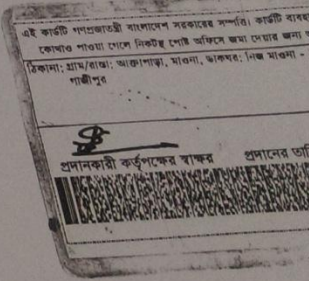 এই কার্ডটি গণপ্রজাতন্ত্রী বাংলাদেশ সরকারের সম্পত্তি। কার্ডটি ব্যবহ
কোথাও পাওয়া গেলে নিকটস্থ পোষ্ট অফিসে জমা দেয়ার জন্য
ঠিকানা: গ্রাম/রাস্তা: আক্তাপাড়া, মাওনা, ডাকঘর: নিজ মাওনা -
গাজীপুর
প্রদানকারী কর্তৃপক্ষের স্বাক্ষর প্রদানের তারি